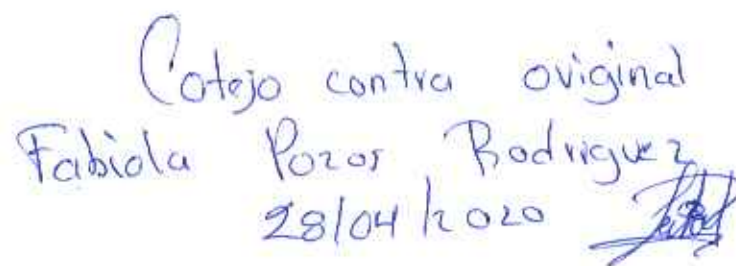 Cotejo contra original
Fabiola Pozos Rodriguez
28/04/2020